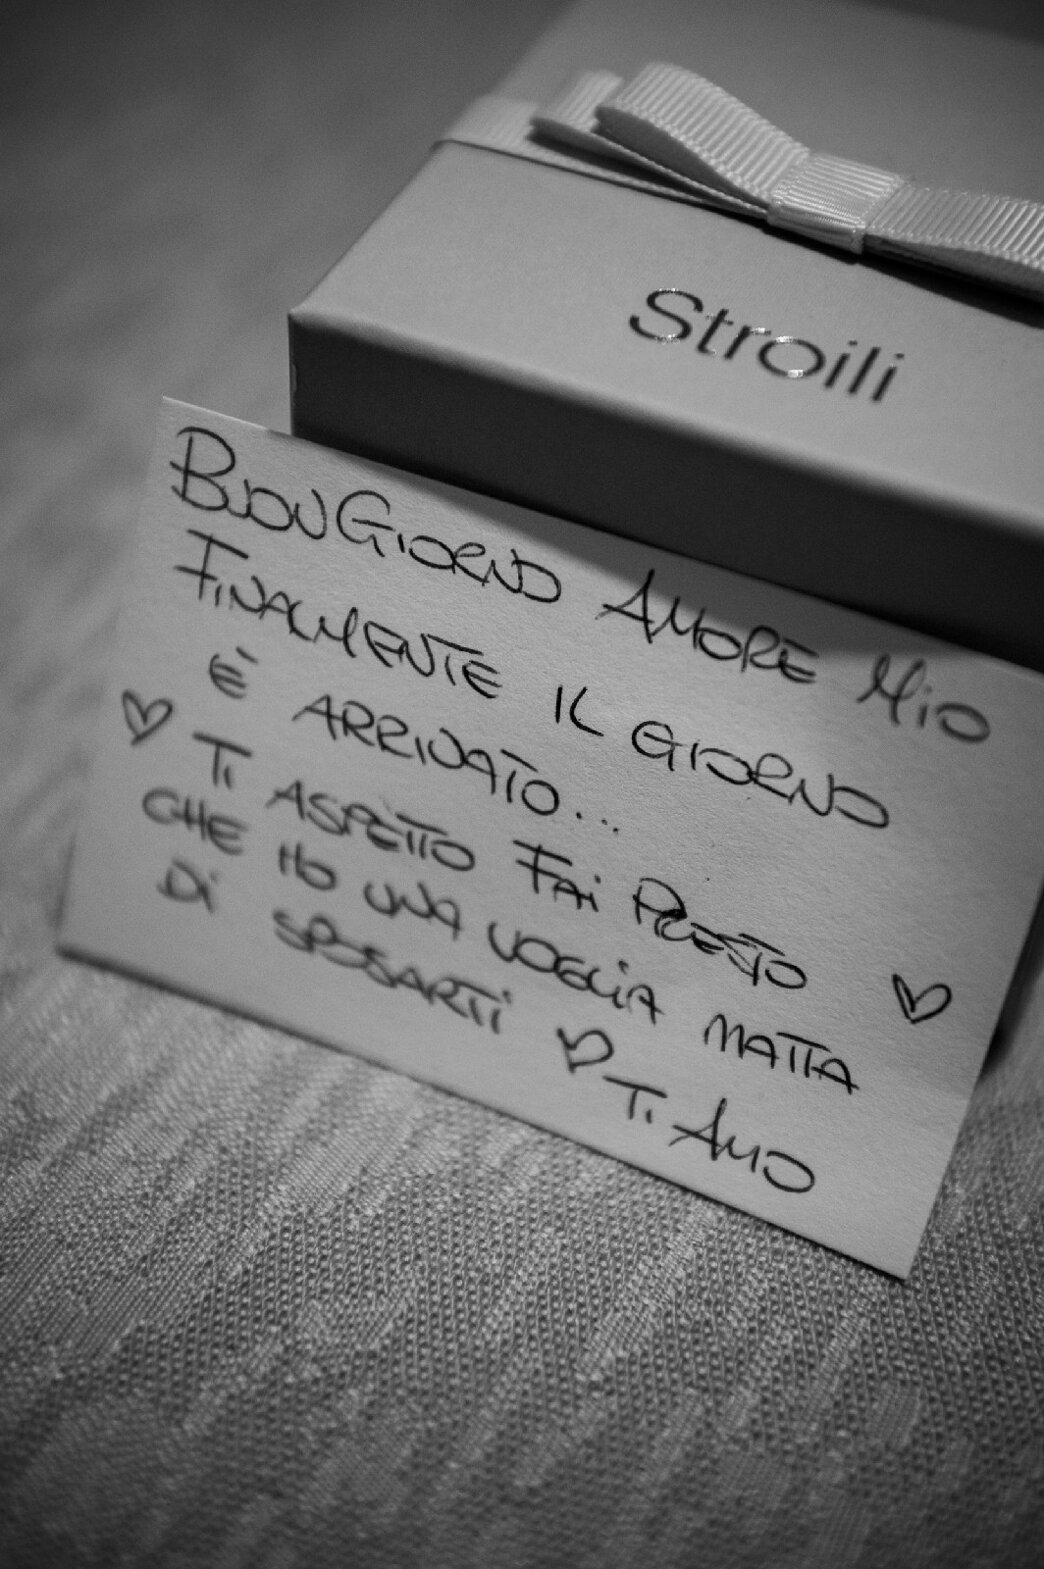 Stroili
BUONGIORNO AMORE MIO
FINALMENTE IL GIORNO
È ARRIVATO...
♡ TI ASPETTO FAI PRESTO ♡
CHE HO UNA VOGLIA MATTA
DI SPOSARTI ♡
TI AMO